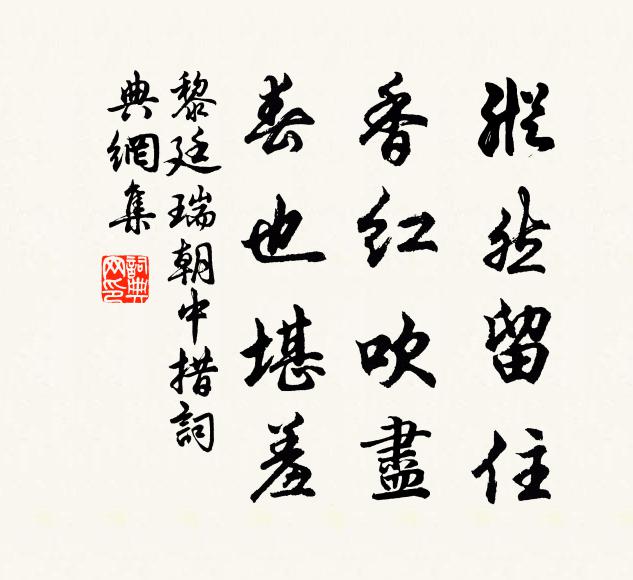 縱然留住
香紅吹盡
春也堪羞
黎廷瑞朝中措詞
典網集
詞典
网印